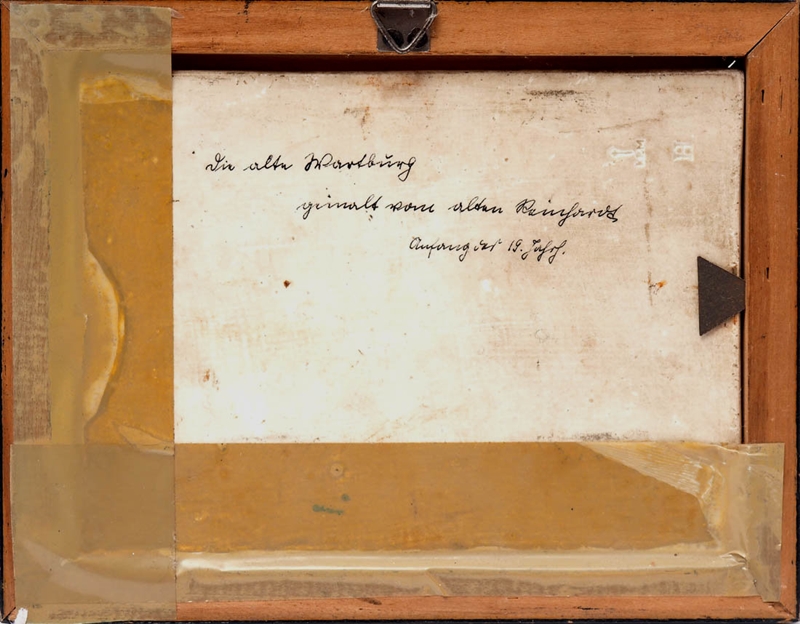 Die alte Wartburg
gemalt vom alten Reinhardt
Anfang des 19. Jahrh.